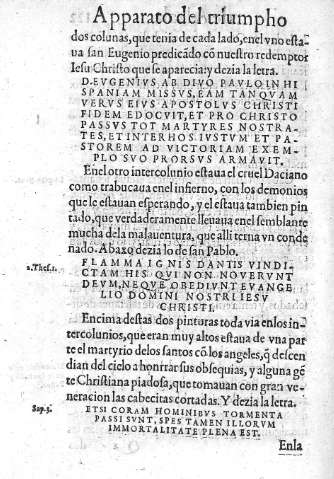 Apparato del triumpho
dos colunas, que tenia de cada lado, enel vno esta-
ua san Eugenio predicãdo cõ nuestro redemptor
Iesu Christo que se aparecia: y dezia la letra.
D. EVGENIVS AB DIVO PAVLO IN HI
SPANIAM MISSVS, EAM TANQVAM
VERVS EIVS APOSTOLVS CHRISTI
FIDEM EDOCVIT, ET PRO CHRISTO
PASSVS TOT MARTYRES NOSTRA-
TES, ET INTER HOS. IVSTVM ET PA-
STOREM AD VICTORIAM EXEM-
PLO SVO PRORSVS ARMAVIT.
Enel otro intercolunio estaua el cruel Daciano
como trabucaua enel infierno, con los demonios
que le estauan esperando, y el estaua tambien pin
tado, que verdaderamente lleuaua enel semblante
mucha dela malauentura, que alli terna vn conde
nado. Abaxo dezia lo de san Pablo.
2. Thes. 1.
FLAMMA IGNIS DANTIS VINDI-
CTAM HIS QVI NON NOVERVNT
DEVM, NEQVE OBEDIVNT EVANGE
LIO DOMINI NOSTRI IESV
CHRISTI.
Encima destas dos pinturas toda via en los in-
tercolunios, que eran muy altos estaua de vna par
te el martyrio delos santos cõ los angeles, q̃ descen
dian del cielo a honrrar sus obsequias, y alguna gẽ
te Christiana piadosa, que tomauan con gran ve-
neracion las cabecitas cortadas. Y dezia la letra.
Sap. 3.
ETSI CORAM HOMINIBVS TORMENTA
PASSI SVNT, SPES TAMEN ILLORVM
IMMORTALITATE PLENA EST.
Enla